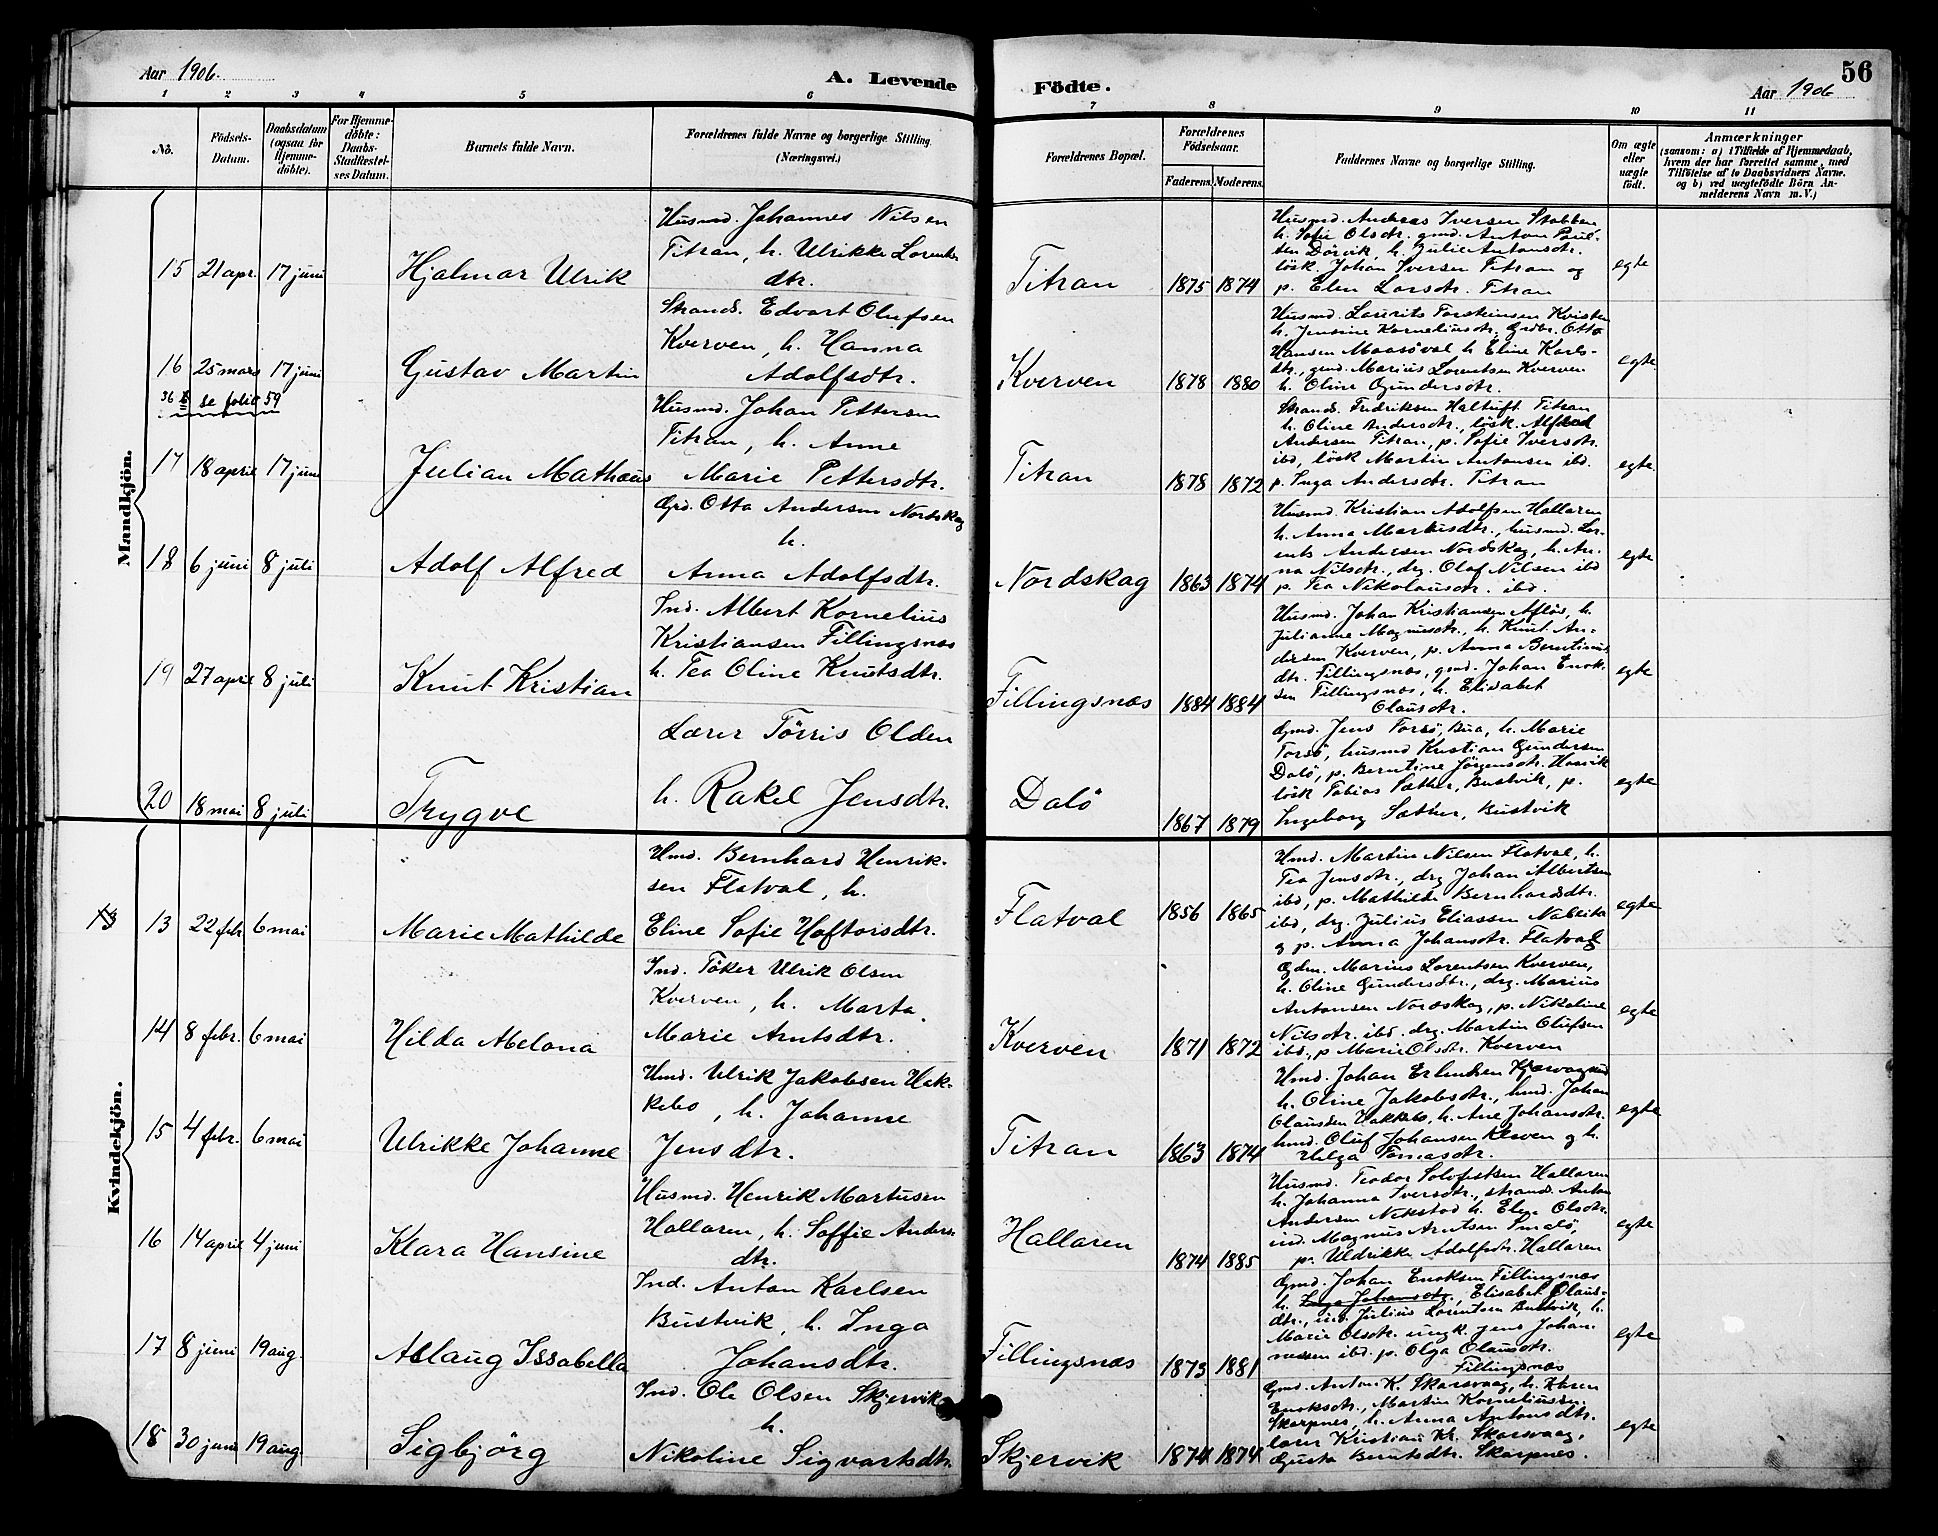 Aar 1906.
A. Levende
Födte.
56
Aar 1906
1 2 3 4 5 6 7 8 9 10 11
No.
Födsels-
Datum.
Daabsdatum
(ogsaa for
Hjemme-
döbte).
For Hjemme-
döbte:
Daabs-
Stadfæstel-
ses Datum.
Barnets fulde Navn.
Forældrenes fulde Navne og borgerlige Stilling.
(Næringsvei.)
Forældrenes Bopæl.
Forældrenes
Födselsaar.
Faderens.
Moderens.
Faddernes Navne og borgerlige Stilling.
Om ægte
eller
uægte
födt.
Anmærkninger
(saasom: a) i Tilfælde af Hjemmedaab,
hvem der har forrettet samme, med
Tilföielse af to Daabsvidners Navne.
og b) ved uægtefödte Börn An-
melderens Navn m.V.)
Mandkjön.
15 21 apr. 17 juni
Hjalmar Ulrik
Husmd. Johannes Nilsen
Titran, h. Ulrikke Lorents
dtr.
Titran 1875 1874
Husmd. Andreas Iversen Stabben
h. Sofie Olsdtr. gmd. Anton Paul-
sen Dörvik, h. Julie Antonsdtr.
løsk. Johan Iversen Titran og
p. Elen Larsdtr. Titran
egte
16 25 mars 17 juni
Gustav Martin
Strands. Edvart Olufsen
Kverven, h. Hanna
Adolfsdtr.
Kverven 1878 1880
Husmd. Laurits Torsteinsen Kvisten
h. Jensine Korneliusdtr. Grdbr. Otto
Hansen Maasøval, h. Eline Karls-
dtr., gmd. Marius Lorentsen Kverven
h. Oline Gundersdtr.
egte
36 se folie 59
17 18 april 17 juni
Julian Mathæus
Husmd. Johan Pettersen
Titran, h. Anne
Marie Pettersdtr.
Titran 1878 1872
Strands. Fredriksen Haltuft Titran
h. Oline Andersdtr., løsk. Alfred
Andersen Titran, p. Sofie Iversdtr.
ibd, løsk Martin Antonsen ibd.
p. Inga Andersdtr. Titran
egte
18 6 juni 8 juli
Adolf Alfred
Grd. Otto Andersen Nordskag
h.
Anna Adolfsdtr.
Nordskag 1863 1874
Husmd. Kristian Adolfsen Hallaren
h. Anna Martusdtr., husmd. Lor-
ents Andersen Nordskag, h. An-
na Nilsdtr., drg. Olaf Nilsen ibd
p. Tea Nikolausdtr. ibd.
egte
19 27 april 8 juli
Knut Kristian
Ind. Albert Kornelius
Kristiansen Fillingsnæs
h. Tea Oline Knutsdtr.
Fillingsnæs 1884 1884
Husmd. Johan Kristiansen Afløs, h.
Julianne Magnusdtr., h. Knut An-
dersen Kverven, p. Anna Berntines
dtr. Fillingsnæs, gmd. Johan Enok-
sen Fillingsnæs, h. Elisabet
Olausdtr.
egte
20 18 mai 8 juli
Trygve
Lærer Tørris Olden
h. Rakel Jensdtr.
Dalø 1867 1879
Gmd. Jens Torsø, Bua, h. Marie
Torsø, husmd Kristian Gundersen
Dalø, p. Berntine Jörgensdtr.
løsk Tobias Sæther, Bustvik, p.
Ingeborg Sæther, Bustvik
egte
Kvindekjön.
13 13 22 febr. 6 mai
Marie Mathilde
Hmd. Bernhard Henrik-
sen Flatval, h.
Eline Sofie Haftorsdtr.
Flatval 1856 1865
Hmd. Martin Nilsen Flatval, h.
Tea Jensdtr., drg Johan Albertsen
ibd, p. Mathilde Bernhardsdtr.
ibd, drg. Julius Eliassen Nabeita
og p. Anna Johansdtr. Flatval
egte
14 8 febr. 6 mai
Hilda Abelona
Ind. Töker Ulrik Olsen
Kverven, h. Marta
Marie Arntsdtr.
Kverven 1871 1872
Gdm. Marius Lorentsen Kverven,
h. Oline Gundersdtr., drg. Marius
Antonsen Nordskag, p. Nikoline
Nilsdtr. ibd. drg. Martin Olufsen
ibd., p Marie Olsdtr. Kverven
egte
15 4 febr. 6 mai
Ulrikke Johanne
Hmd. Ulrik Jakobsen Hak-
kebo, h. Johanne
Jensdtr.
Titran 1863 1874
Hmd. Johan Erlendsen
h. Oline Jakobsdtr., hmd. Johan
Olausden Hakkebo, h. Ane Johansdtr.
hmd. Oluf Johansen Kerven og h.
Helga Tomasdtr.
egte
16 14 april 4 juni
Klara Hansine
Husmd. Henrik Martusen
Hallaren, h. Soffie Anders
dtr.
Hallaren 1874 1885
Husmd. Teodor Solofestsen Hallaren
h. Johanna Iversdtr., strands. Anton
Andersen Nekstad h. Elen Olsdtr.
ind. Magnus Arntsen Smalø,
p. Uldrikke Adolfsdtr. Hallaren
egte
17 8 juni 19 aug.
Aslaug Issabella
Ind. Anton Karlsen
Bustvik, h. Inga
Johansdtr.
Fillingsnæs 1873 1881
Gmd. Johan Enoksen Fillingsnæs
h. Inga Johansdtr, Elisabet Olaus-
dtr., ind. Julius Lorentsen Bustvik, h.
Marie Olsdtr. ungk. Jens Johan-
nessen ibd. p. Olga Olausdtr.
Fillingsnæs
egte
18 30 juni 19 aug.
Sigbjörg
Ind. Ole Olsen Skjervik
h.
Nikoline Sigvartsdtr.
Skjervik 1874 1874
Gmd. Anton K. Skarsvaag, h. Karen
Enoksdtr., Martin Korneliussen
Skarpnes, h. Anna Antonsdtr.
lærer Kristian Kr. Skarsvaag,
Gusta Berntsdtr. Skarpnes.
egte